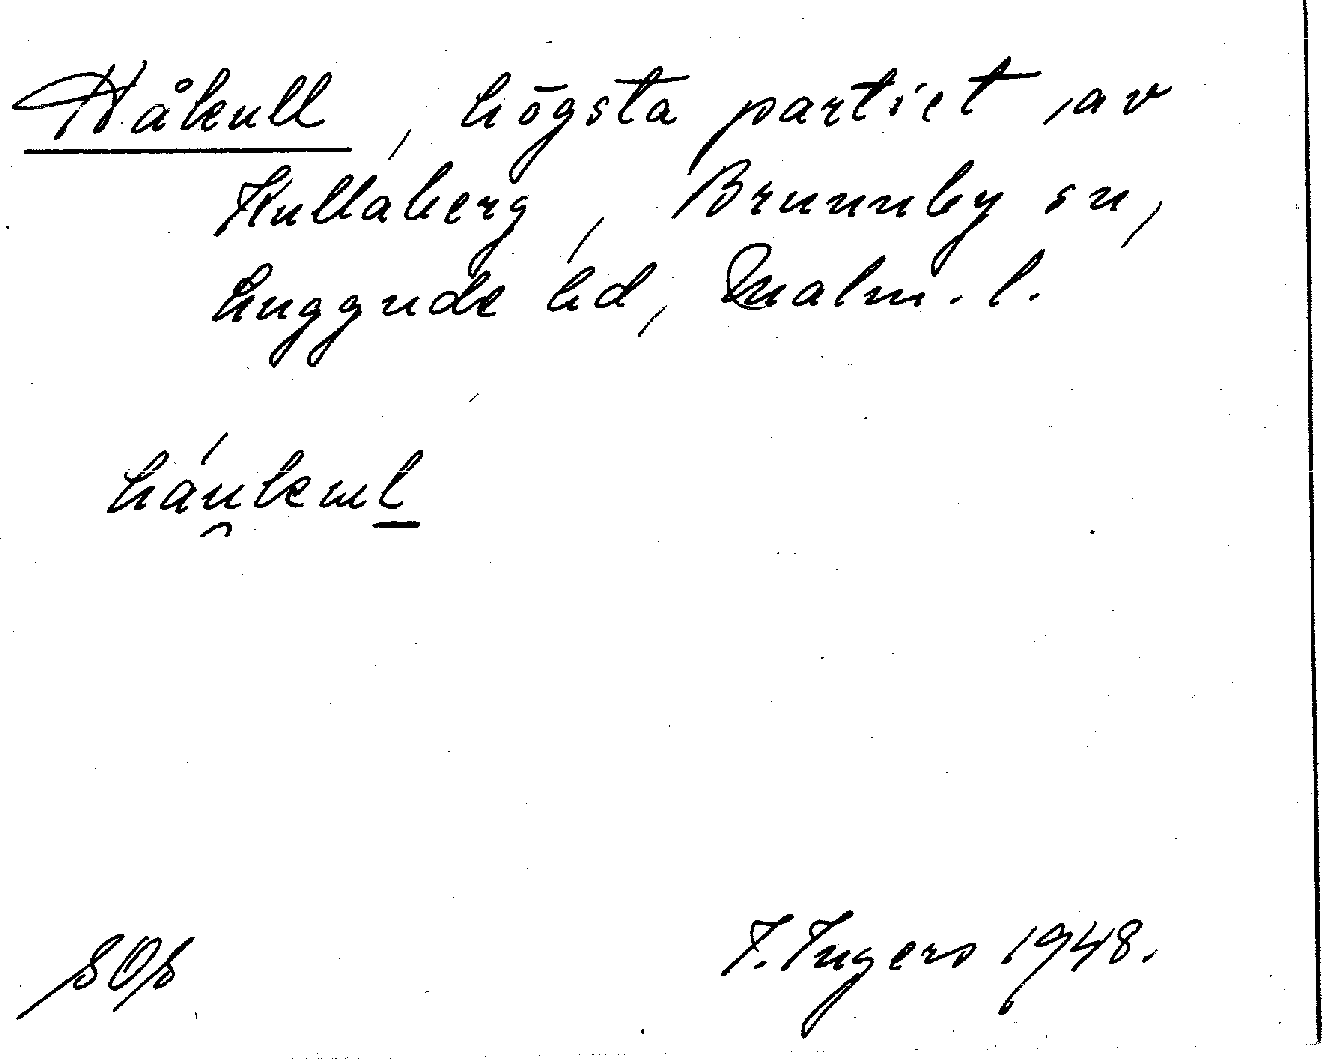 Håkull, högsta partiet av
Kullaberg, Brunnby sn,
Luggude hd, Malm. l.
háu̯kɯl
SOS
I. Ingers 1948.